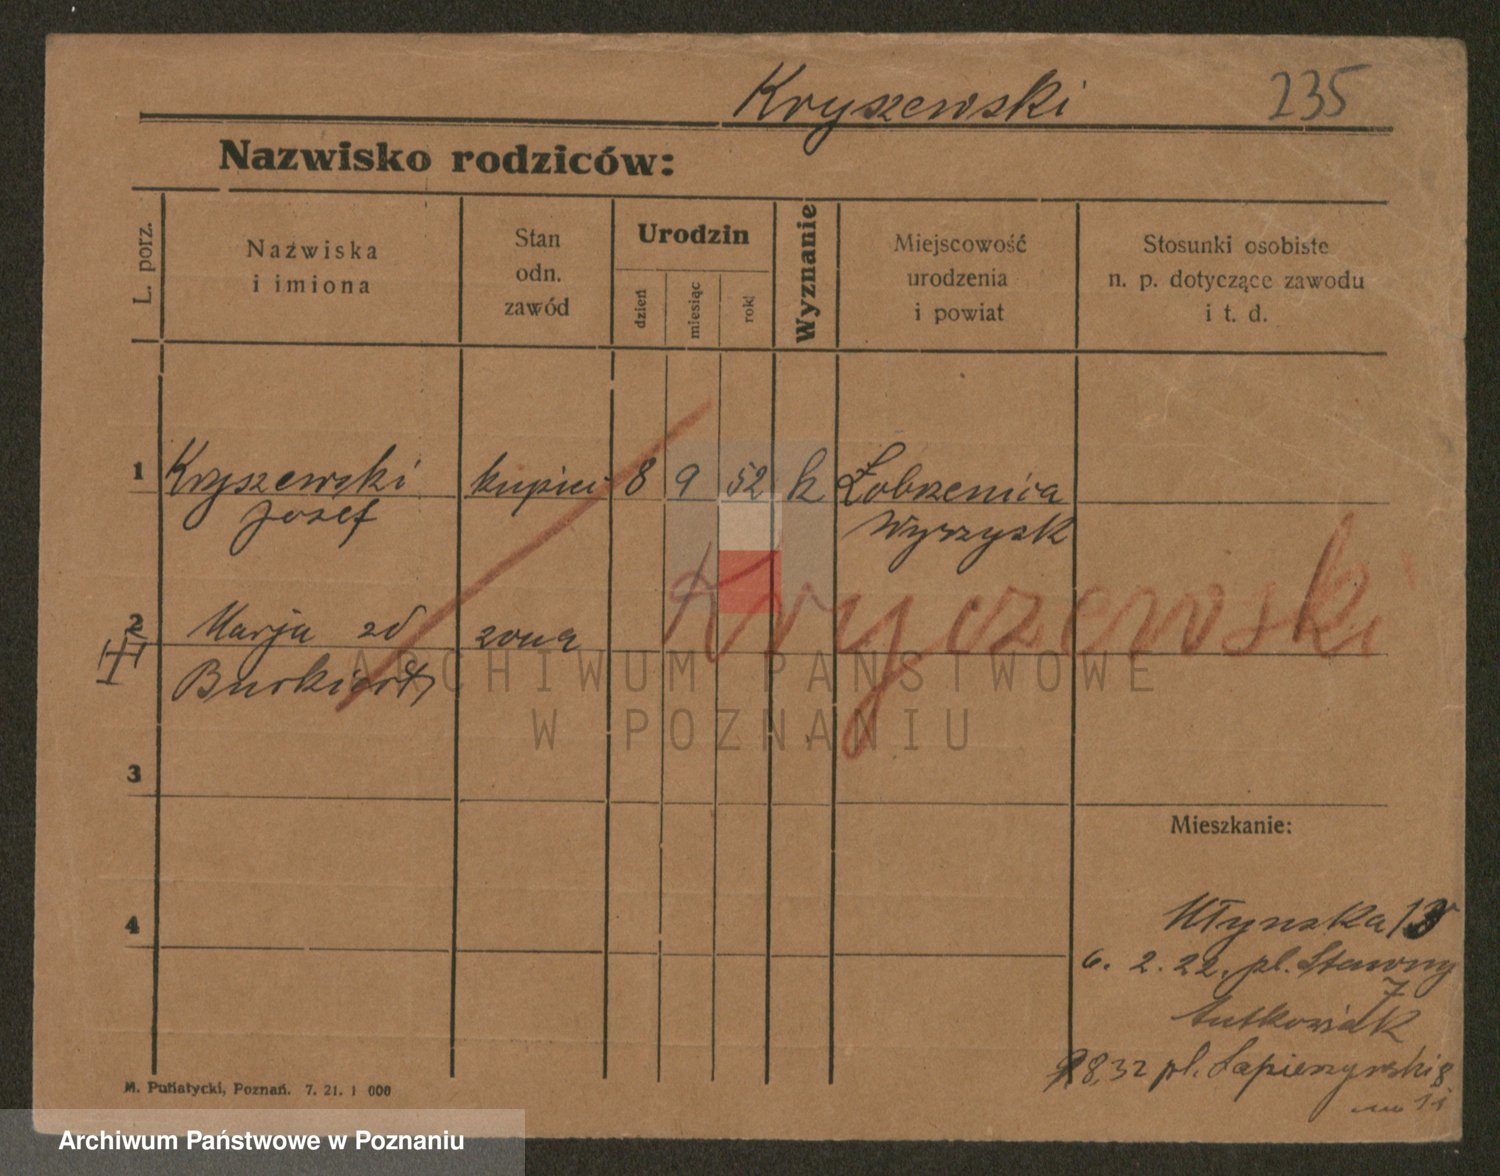 Kryszewski 235
Nazwisko rodziców:
L. porz.
Nazwiska
i imiona
Stan
odn.
zawód
Urodzin
dzień
miesiąc
rok
Wyznanie
Miejscowość
urodzenia
i powiat
Stosunki osobiste
n. p. dotyczące zawodu
i t. d.
1 Kryszewski kupiec 8 9 52 k Łobzenica
Józef Wyrzysk
Kryczewski
2 Marja zd żona
3
4
Mieszkanie:
Młyńska
6. 2. 22. pl. Stawny
7
Lutkowiak
8.32 pl. Sapieżyński 8
ARCHIWUM PAŃSTWOWE
W POZNANIU
M. Putiatycki, Poznań. 7. 21. 1 000
Archiwum Państwowe w Poznaniu